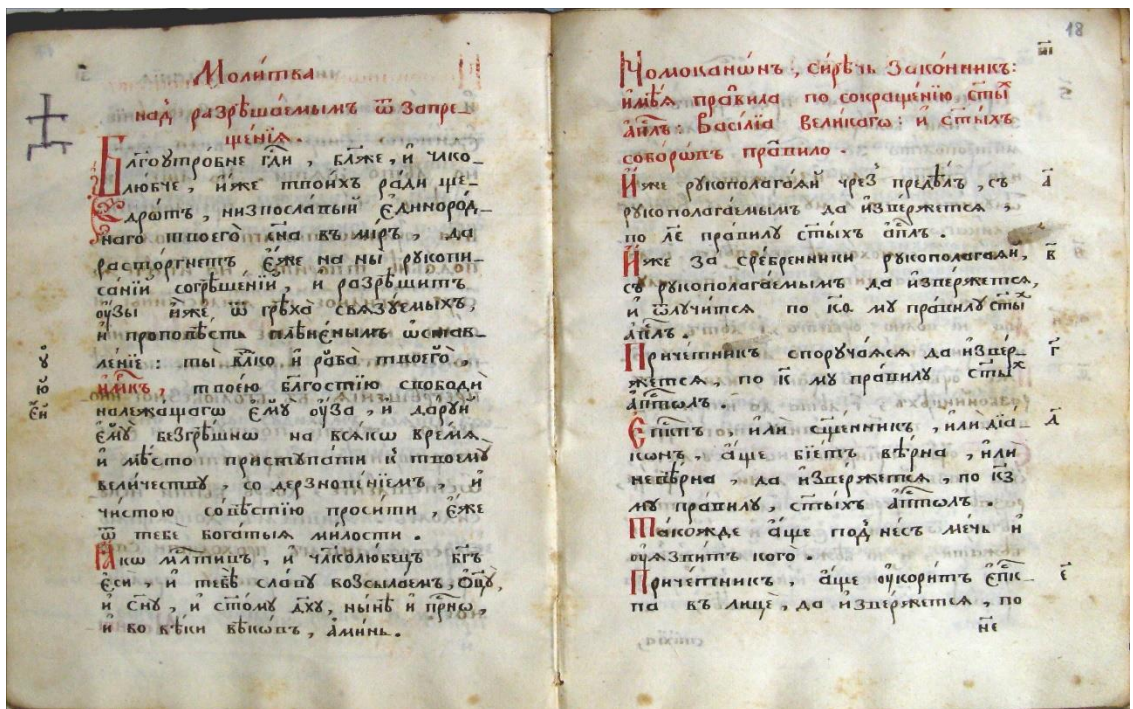 Моли́тва
над̾ разрѣша́емымъ ѿ запре_
ще́нїѧ.
Благоꙋтро́бне гдⷭ҇и , бл҃же , и҆ чл҃ко_
лю́бче , и҆́же твои́хъ ра́ди ще_
дро́тъ , низпосла́вый є҆диноро́д_
наго твоего̀ сн҃а въ мі́ръ , да
расто́ргнетъ є҆́же на ны̀ рꙋкопи_
са́нїй согрѣше́нїй , и разрѣши́тъ
оу҆́зы и҆̀же ѿ грѣха̀ свѧзꙋ́емыхъ ,
и҆ проповѣ́сть плѣне́нымъ ѡ҆ста́в_
ле́нїе : ты̀ влⷣко и҆ раба̀ твоего̀ ,
и҆м҃къ , твое́ю бл҃гостїю свободѝ
належа́щагѡ є҆мꙋ̀ оу҆́за , и҆ да́рꙋй
є҆мꙋ̀ безгрѣ́шнѡ на всѧ́кѡ вре́мѧ
и҆ мѣ́сто пристꙋпа́ти к̾ твоемꙋ̀
вели́чествꙋ , со дерзнове́нїемъ , и҆
чи́стою со́вѣстїю проси́ти , є҆́же
ѿ тебѐ бога́тыѧ ми́лости .
Ꙗ҆́кѡ млⷭ҇тивъ , и҆ чл҃колю́бецъ бг҃ъ
є҆сѝ , и҆ тебѣ̀ сла́вꙋ возсыла́емъ , ѻ҆ц҃ꙋ̀ ,
и҆ сн҃ꙋ , и҆ ст҃о́мꙋ дх҃ꙋ , ны́нѣ и҆ прⷭ҇нѡ ,
и҆ во вѣ́ки вѣкѡ́въ , а҆ми́нь .
18
Номокано́нъ , си́рѣчь Зако́нникъ :
имѣ́ѧ пра́вила по сокраще́нїю , ст҃ы́хъ
а҆пⷭ҇лъ : Васі́лїа вели́кагѡ : и҆ ст҃ы́хъ
собо́рѡвъ пра́вило .
И҆́же рꙋкополага́ѧй чрез̾ предѣ́лъ , съ
рꙋкополага́емымъ да и҆зве́ржетсѧ ,
по л҃е пра́вилꙋ ст҃ы́хъ а҆пⷭ҇лъ .
а҃
И҆́же за сре́бренники рꙋкополага́ѧй ,
съ рꙋкополага́емымъ да и҆зве́ржетсѧ ,
и҆ ѿлꙋчи́тсѧ по к҃ѳ мꙋ пра́вилꙋ ст҃ы́хъ
а҆пⷭ҇лъ .
в҃
Приче́тникъ спорꙋча́ѧсѧ да и҆зве́р_
жетсѧ , по к҃ мꙋ пра́вилꙋ ст҃ы́хъ
а҆пⷭ҇толъ .
г҃
Є҆пⷭ҇кпъ , и҆лѝ сщ҃е́нникъ , и҆лѝ дїа́_
конъ , а҆́ще бїе́тъ вѣ́рна , и҆лѝ
невѣ́рна , да и҆зве́ржетсѧ , по к҃з
мꙋ пра́вилꙋ , ст҃ы́хъ а҆пⷭ҇толъ .
д҃
Та́кожде а҆́ще под̾не́съ ме́чь и҆
оу҆ѧ́звитъ кого̀ .
Приче́тникъ , а҆́ще оу҆кори́тъ є҆пⷭ҇к_
па въ лицѐ , да и҆зве́ржетсѧ , по
є҃
не